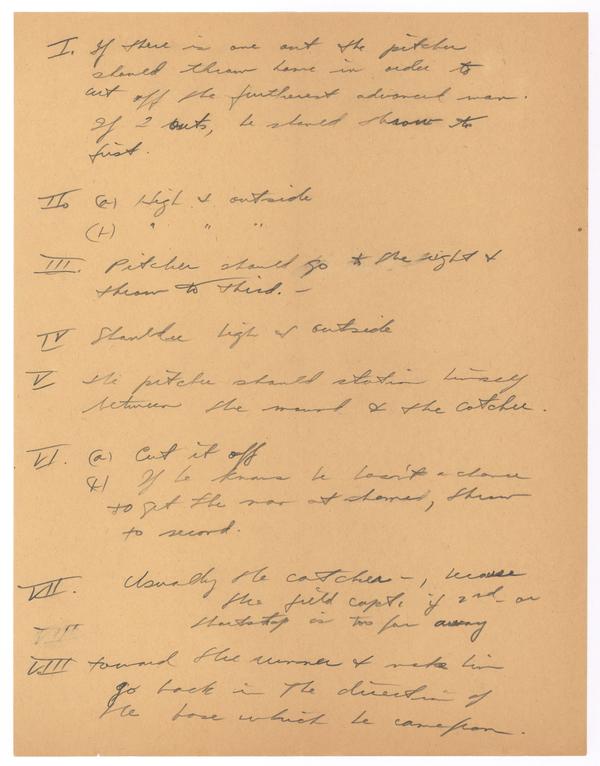 I. If there is one out the pitcher
should throw home in order to
cut off the furtherest advanced man.
If 2 outs, he should throw to
first.
II. (a) High & outside
(b) " " "
III. Pitcher should go to the right &
throw to third. -
IV Shoulder high & outside
V The pitcher should station himself
between the mound & the catcher.
VI. (a) Cut it off
(b) If he knows he hasn't a chance
to get the man at home, throw
to second.
VII. Usually the catcher -, because
the field capt. if 2nd - or
shortstop is too far away
VIII
VIII toward the runner & make him
go back in the direction of
the base which he came from.